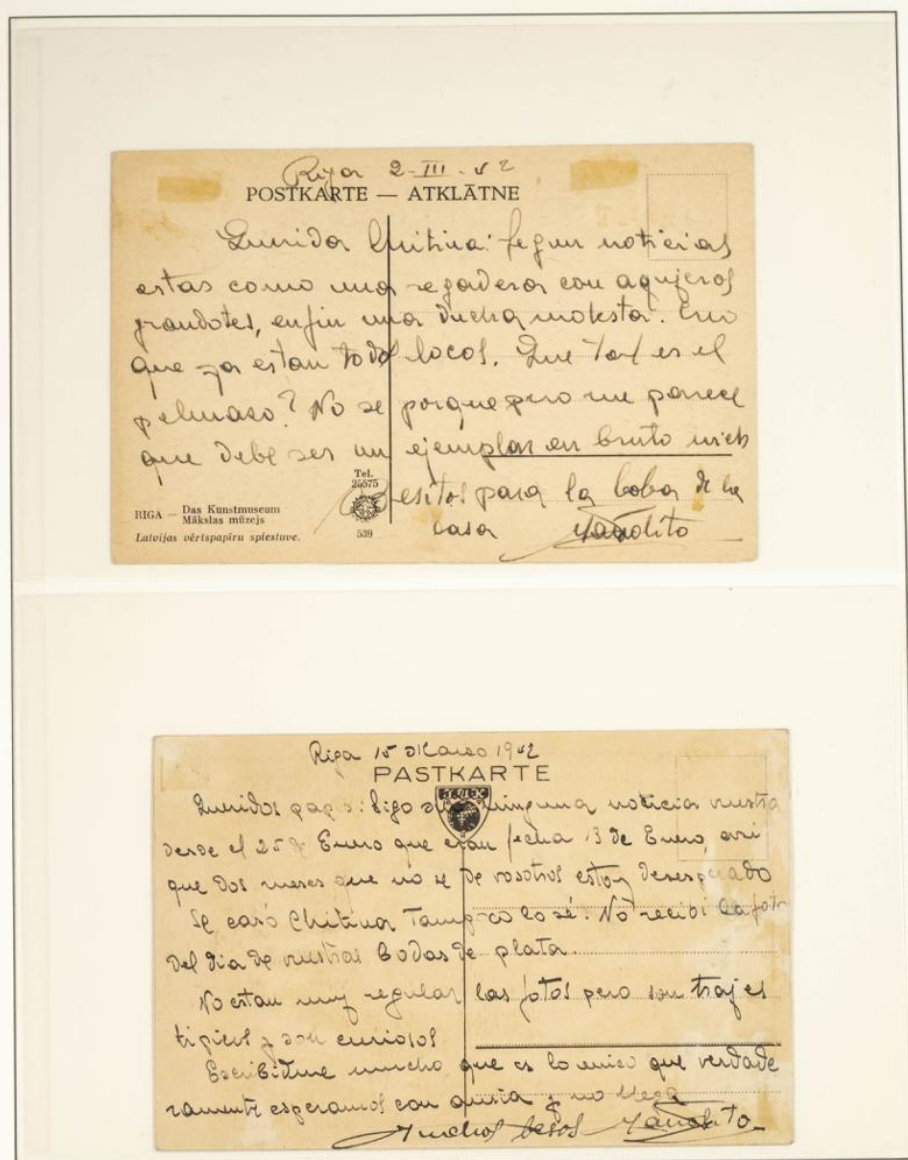 Riga 2-III-42
POSTKARTE — ATKLĀTNE
Querida Chitina: segun noticias
estas como una regadera con agujeros
grandotes, en fin una ducha molesta. Creo
que ya estan todos locos. Que tal es el
pelmaso? No se porque pero me parece
que debe ser un ejemplar en bruto
Besitos para la boba de la
casa Manolito
Tel.
25575
RIGA — Das Kunstmuseum
Mākslas mūzejs
539
Latvijas vērtspapīru spiestuve.
Riga 15 Marzo 1942
PASTKARTE
Queridos papas: Sigo sin ninguna noticia vuestra
desde el 25 de Enero que eran fecha 13 de Enero, asi
que dos meses que no se de vosotros estoy desesperado
Se casó Chitina Tampoco lo sé. No recibi la foto
del dia de vuestras bodas de plata.
No estan muy regular las fotos pero son trajes
tipicos y son curiosos
Escribidme mucho que es lo unico que verdade
ramente esperamos con ansia y no llega
Muchos besos Manolito